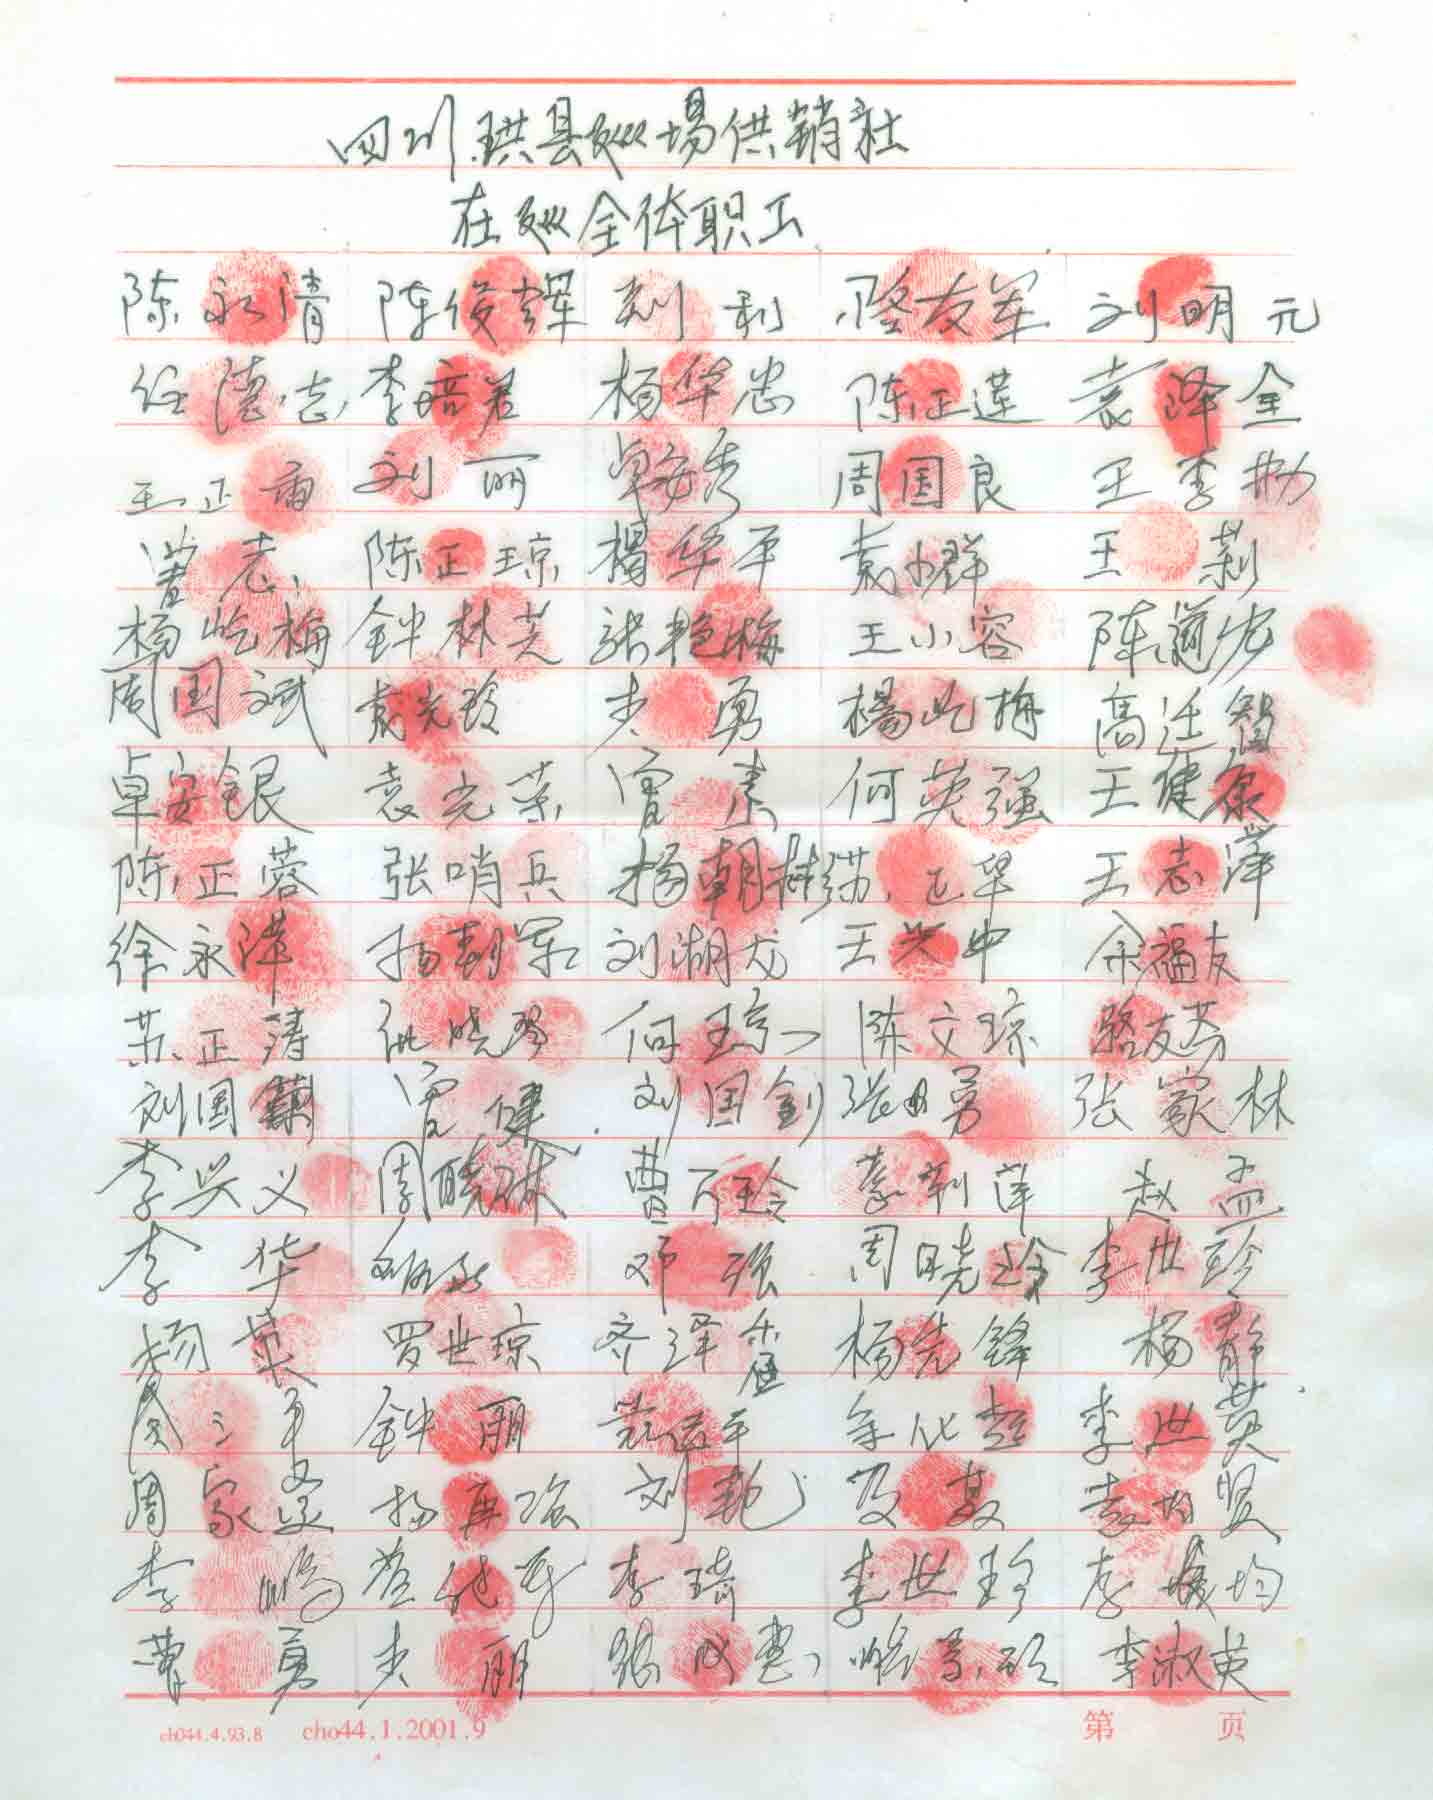 四川珙县巡场供销社
在巡全体职工
陈永清 陈俊辉 刘利 隆友军 刘明元
任德志 李培君 杨华忠 陈正莲 袁泽全
王正南 刘丽 卓安秀 周国良 王李勋
董志 陈正琼 杨华平 袁小群 王莉
杨屹梅 钟林芝 张艳梅 王小容 陈道宏
周国斌 袁光玲 李勇 杨屹梅 高迁智
卓安银 袁光荣 曾素 何英强 王健康
陈正蓉 张哨兵 杨朝林 苏正华 王志泽
徐永萍 杨朝军 刘湖龙 王兴中 余福友
苏正涛 何琼 陈文琼 路友芬
刘国 曾健 刘国剑 张勇 张家林
李兴义 周晓琳 曹万玲 袁利萍 赵孟
李华 邓强 周晓玲 李世珍
杨英 罗世琼 齐泽 杨先锋 杨静
周 平 钟丽 余化超 李世英
周家 杨再洛 刘艳 袁均贤
李鹏 李琦 李世珍 李成均
曹勇 李丽 张成惠 李淑英
ch044.4.93.8 cho44.1.2001.9 第 页